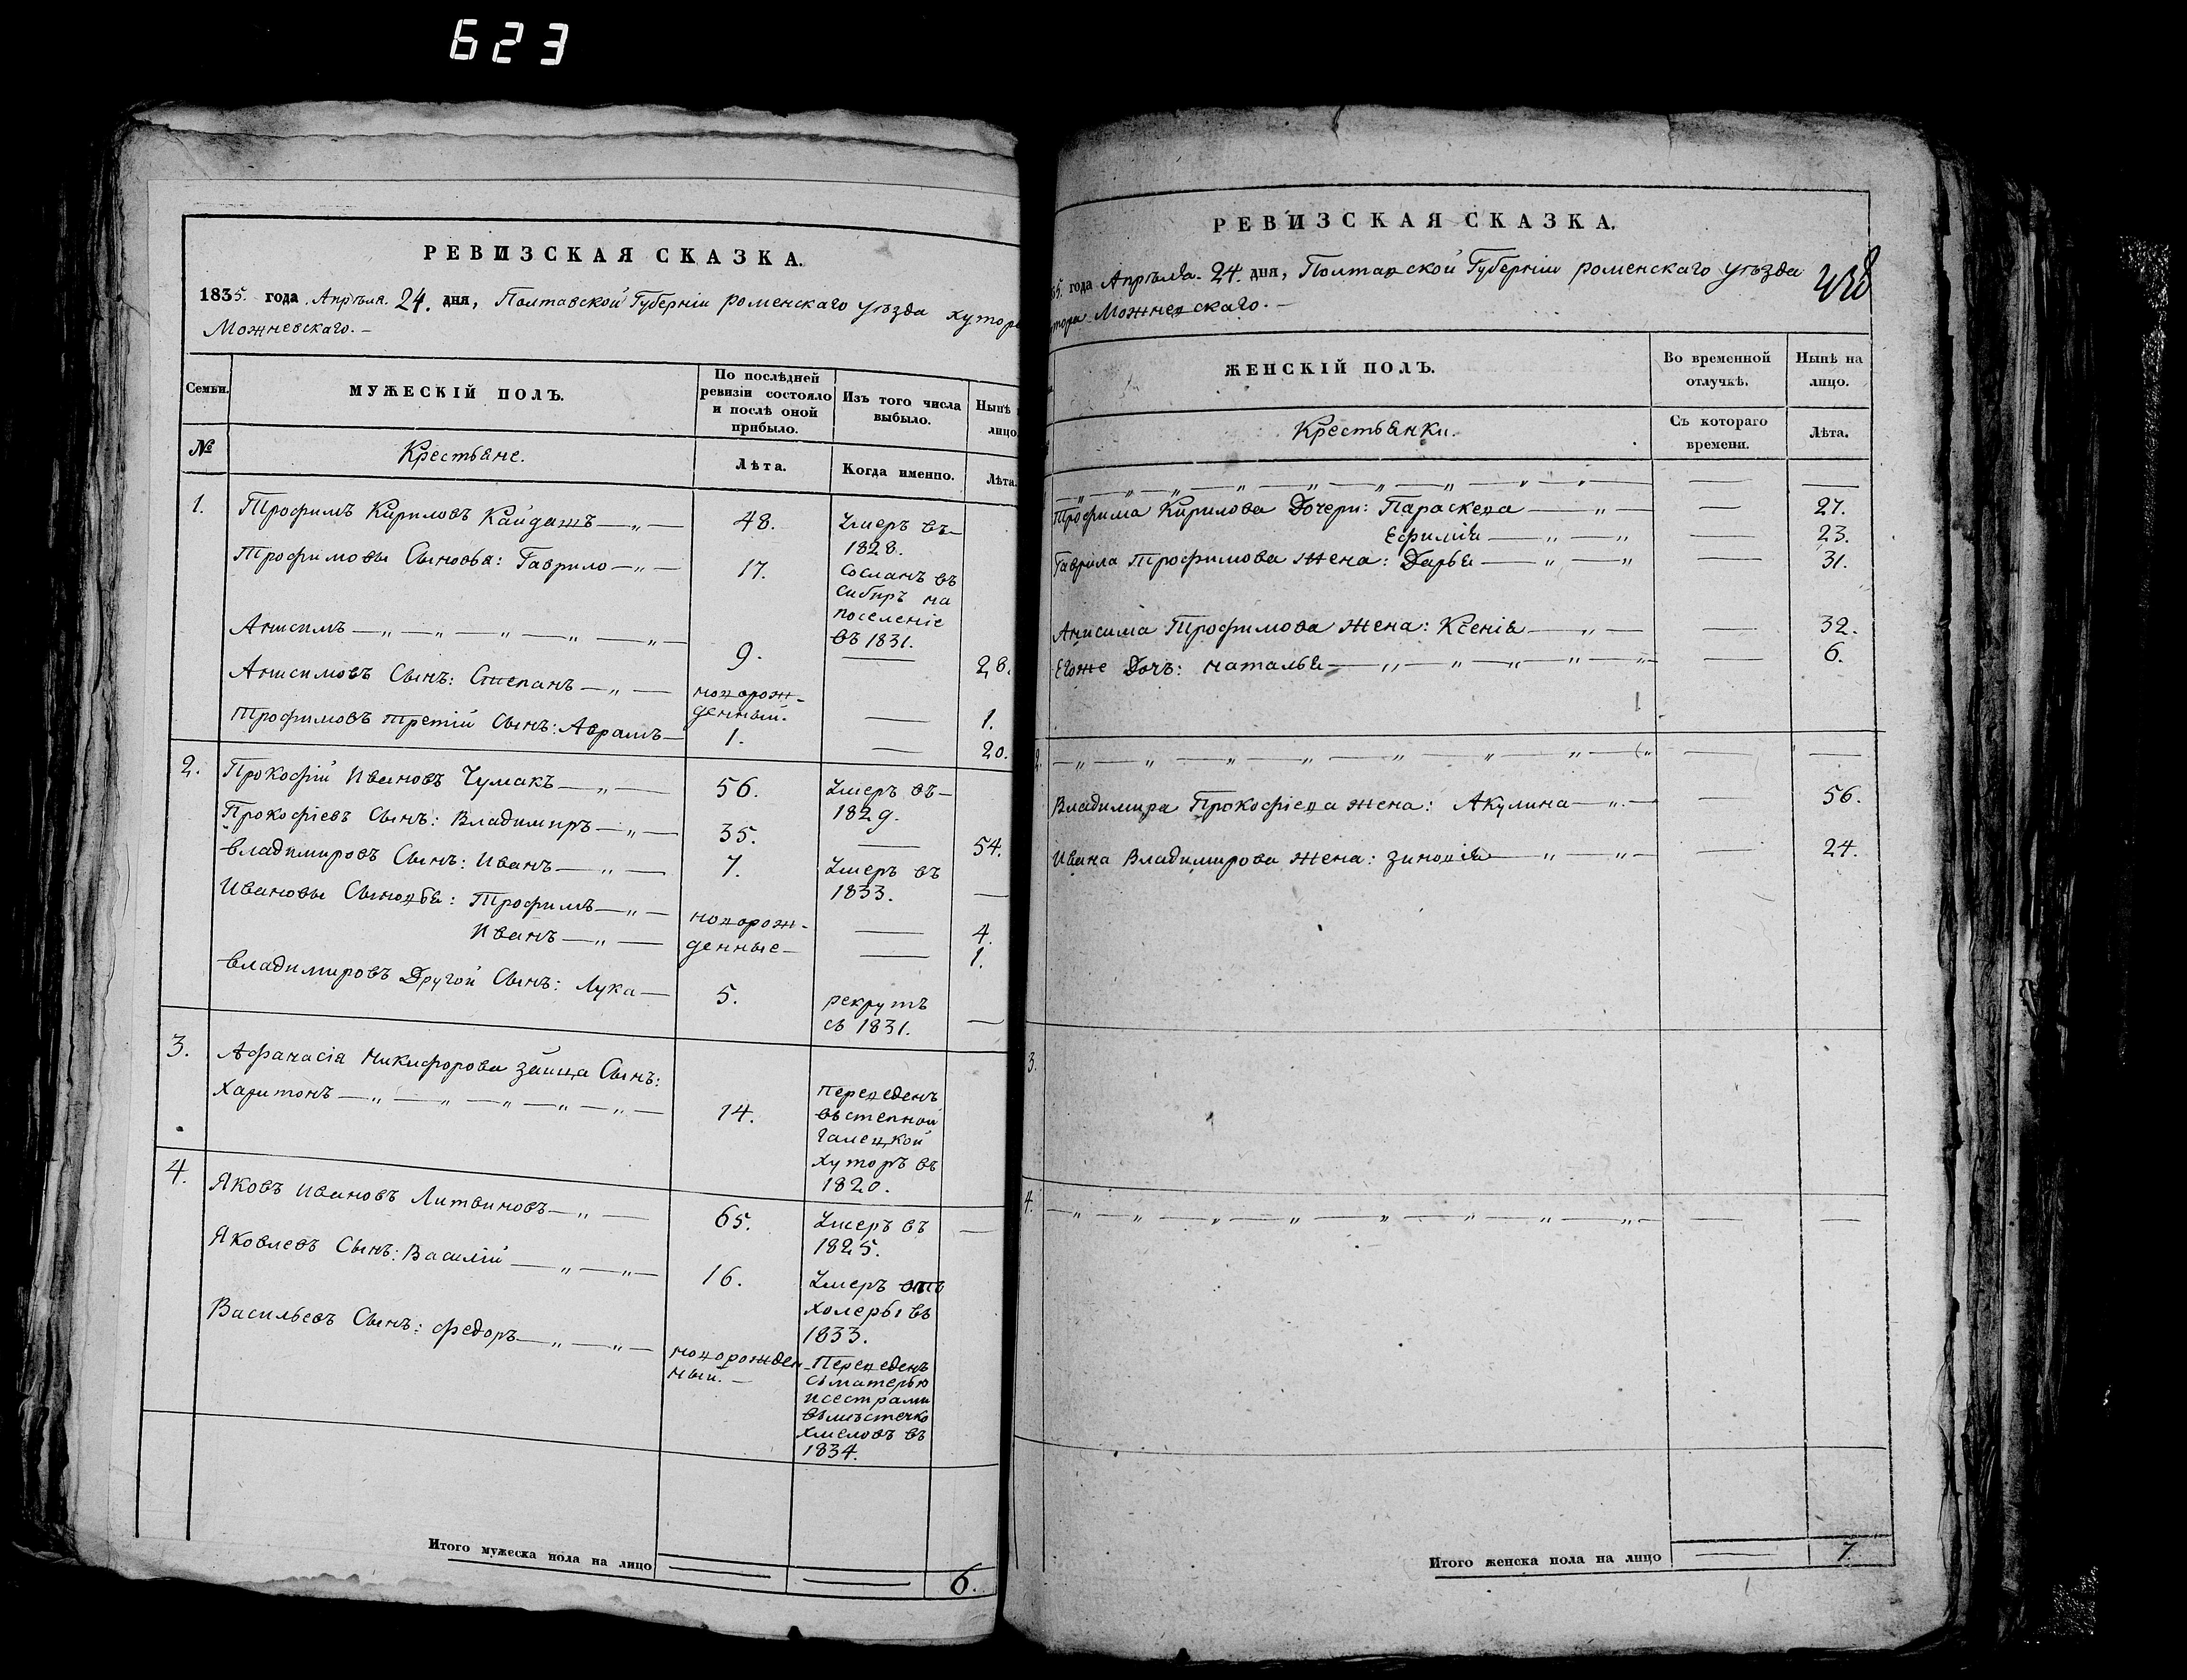 623
РЕВИЗСКАЯ СКАЗКА.
1835. года Апрѣля. 24. дня, Полтавской Губерніи роменскаго уѣзда хутора
Можневскаго.—
Семьи. МУЖЕСКІЙ ПОЛЪ. По послѣдней ревизіи состояло и послѣ оной прибыло. Изъ того числа выбыло. Нынѣ лицо.
№ Крестьяне. Лѣта. Когда именно. Лѣта.
1. Трофимъ Кириловъ Кайдашъ—„— 48. Умеръ въ
1828.
Трофимовы Сыновья: Гаврило—„— 17. Сосланъ въ
сибирь на
поселеніе
въ 1831.
Анисимъ—„—„—„—„—„— 9. — 28.
Анисимовъ Сынъ: Степанъ—„— новорож-
денный. — 1.
Трофимовъ третій Сынъ: Аврамъ— 1. — 20.
2. Прокофій Ивановъ Чумакъ—„— 56. Умеръ въ
1829.
Прокофіевъ Сынъ: Владимиръ—„— 35. — 54.
Владимировъ Сынъ: Иванъ—„— 7. Умеръ въ
1833. —
Ивановы Сыновья: Трофимъ—„— новорож- — 4.
Иванъ—„— денные— — 1.
Владимировъ Другой Сынъ: Лука— 5. рекрутъ
съ 1831. —
3. Афанасія Никифорова зайца Сынъ:
Харитонъ—„—„—„—„—„— 14. Переведенъ
въ степной
галецкой
хуторъ въ
1820.
4. Яковъ Ивановъ Литвиновъ—„— 65. Умеръ въ —
1825.
Яковлевъ Сынъ: Василій—„—„— 16. Умеръ отъ
холеры въ
1833.
Васильевъ Сынъ: Федоръ—„—„— новорожден
ный.— Переведенъ
съ матерью
и сестрами
въ мѣстечко
Хмеловъ въ
1834.
Итого мужеска пола на лицо — — 6.
РЕВИЗСКАЯ СКАЗКА.
35. года Апрѣля. 24. дня, Полтавской Губерніи роменскаго уѣзда
тора Можневскаго.—
ЖЕНСКІЙ ПОЛЪ. Во временной отлучкѣ. Нынѣ на лицо.
Крестьянки. Съ котораго времени. Лѣта.
—„—„—„—„—„—„—„—„—„— — —
Трофима Кирилова Дочери: Параскева—„— — 27.
Ефимія—„—„ — 23.
Гаврила Трофимова жена: Дарья—„—„ — 31.
Анисима Трофимова жена: Ксенія—„— — 32.
Егоже Дочь: наталья—„—„—„—„—„— — 6.
2. —„—„—„—„—„—„—„—„ — —
Владимира Прокофіева жена: Акулина—„— — 56.
Ивана Владимирова жена: зиновія—„—„— — 24.
3.
4. —„—„—„—„—„—„—„—„— — —
Итого женска пола на лицо — 7.